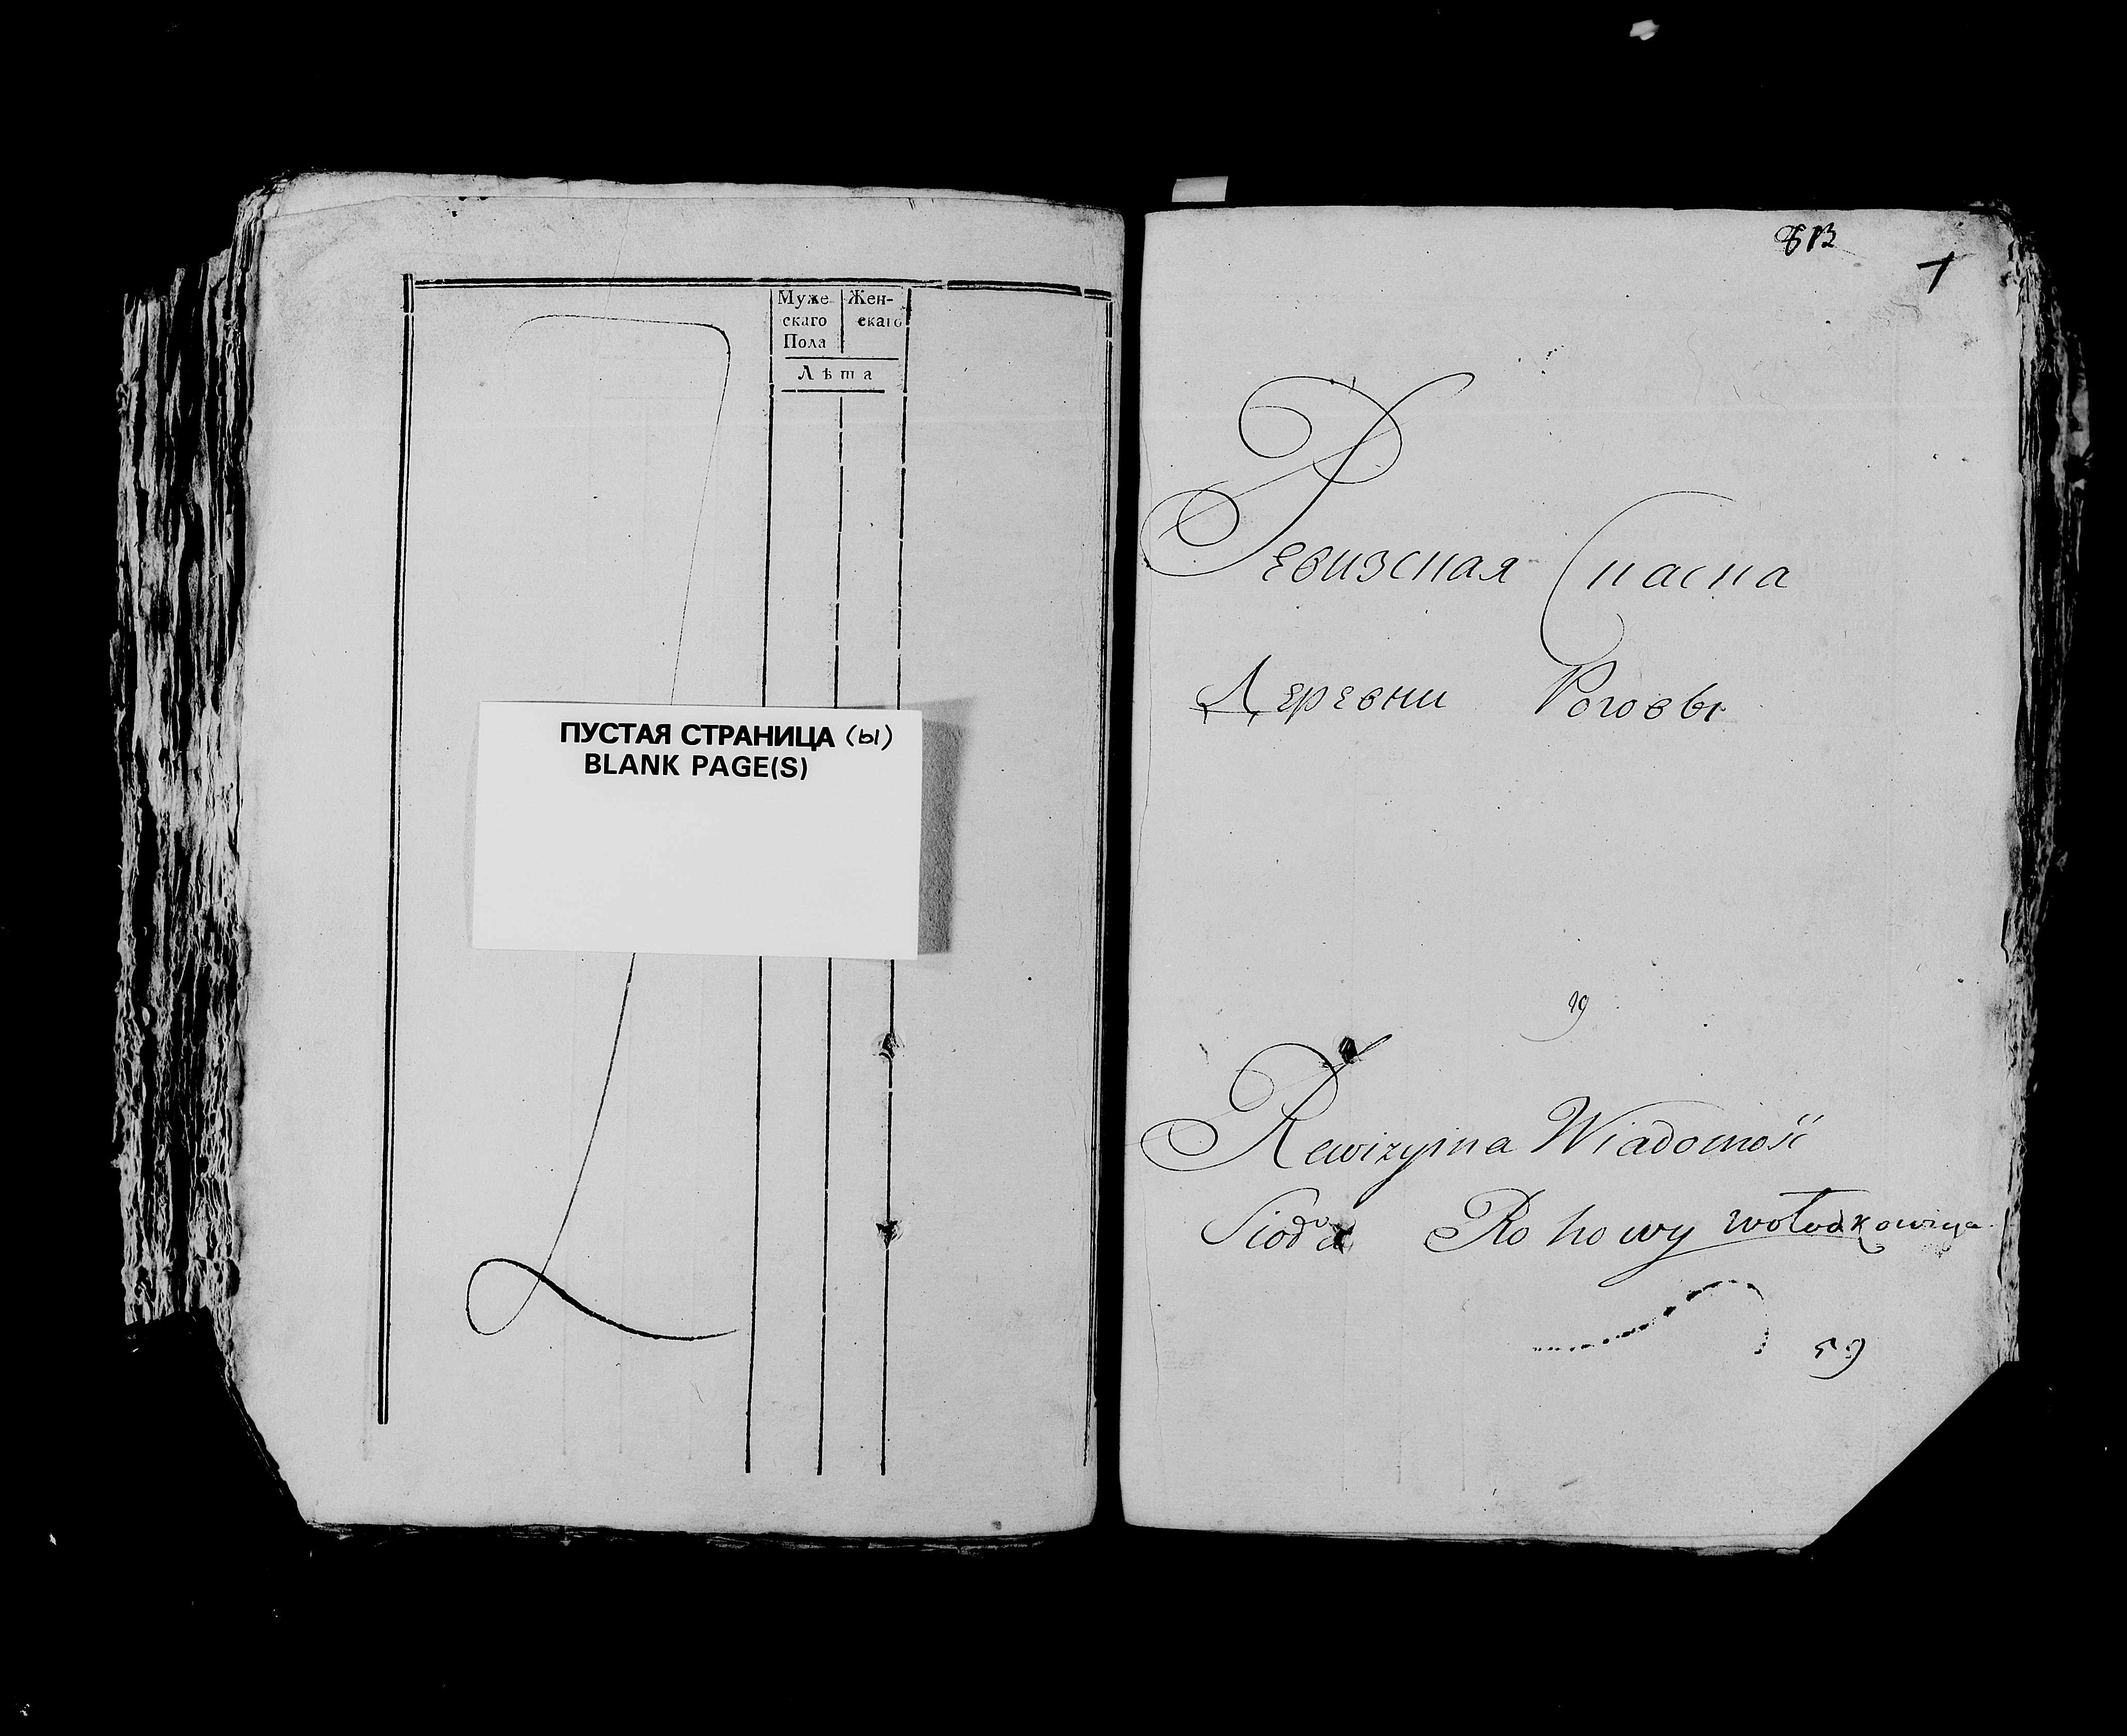 Муже- Жен-
скаго скаго
Пола
Лѣта
ПУСТАЯ СТРАНИЦА (ы)
BLANK PAGE(S)
813
1
Ревизская Скаска
Деревни Роговы
19
Rewizyina Wiadomość
Sioła Rohowy wołodkowicza
59